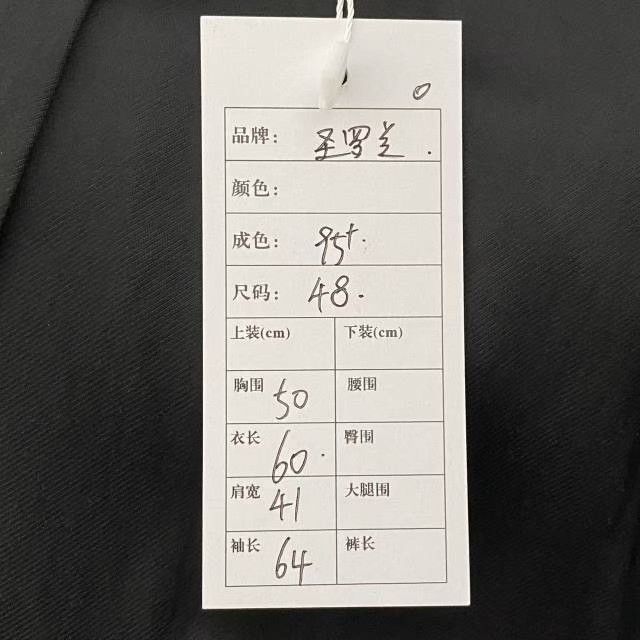 0
品牌: 圣罗兰.
颜色:
成色: 95+.
尺码: 48.
上装(cm) 下装(cm)
胸围 50 腰围
衣长 60. 臀围
肩宽 41 大腿围
袖长 64 裤长